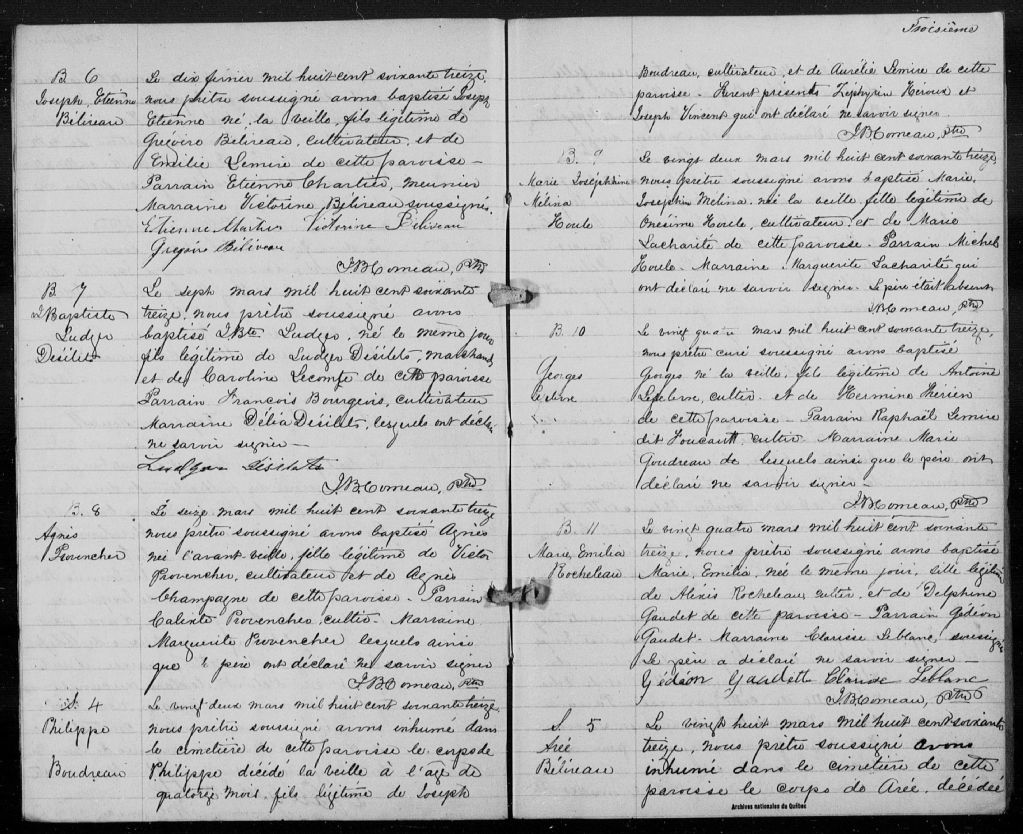 B 6
Joseph, Etienne
Béliveau
Le dix février mil huit cent soixante treize,
nous prêtre soussigné avons baptisé Joseph
Etienne né, la veille, fils légitime de
Grégoire Béliveau, cultivateur, et de
Emilie Lemire de cette paroisse -
Parrain Etienne Chartier, meunier
Marraine Victorine, Béliveau soussignés.
Etienne Chartier Victorine Béliveau
Grégoire Béliveau
J. B. Comeau, Ptre
B 7
J Baptiste
Ludger
Désilets
Le sept mars mil huit cent soixante
treize, nous prêtre soussigné avons
baptisé J. Bte Ludger, né le même jour
fils légitime de Ludger Désilets, marchand
et de Caroline Lecomte de cette paroisse
Parrain François Bourgeois, cultivateur
Marraine Délia Désilets, lesquels ont déclaré
ne savoir signer -
Ludger Désilets
J. B. Comeau, Ptre
B. 8
Agnès
Provencher
Le seize mars mil huit cent soixante treize
nous prêtre soussigné avons baptisé Agnès
née l'avant veille, fille légitime de Victor
Provencher, cultivateur et de Agnès
Champagne de cette paroisse - Parrain
Calixte Provencher, cultr - Marraine
Marguerite Provencher lesquels ainsi
que le père ont déclaré ne savoir signer
J. B. Comeau, Ptre
S. 4
Philippe
Boudreau
Le vingt deux mars mil huit cent soixante treize,
nous prêtre soussigné avons inhumé dans
le cimetière de cette paroisse le corps de
Philippe décédé la veille à l'âge de
quatorze mois, fils légitime de Joseph
Troisième
Boudreau, cultivateur, et de Aurélie Lemire de cette
paroisse - Furent présents Zéphyrin Héroux et
Joseph Vincent qui ont déclaré ne savoir signer.
J. B. Comeau, Ptre
B. 9
Marie Joséphine
Mélina
Houle
Le vingt deux mars mil huit cent soixante treize,
nous prêtre soussigné avons baptisé Marie,
Joséphine Mélina née la veille, fille légitime de
Onésime Houle, cultivateur, et de Marie
Lacharité de cette paroisse - Parrain Michel
Houle - Marraine - Marguerite Lacharité qui
ont déclaré ne savoir signer - Le père était absent
J. B. Comeau, Ptre
B. 10
Georges
Lefebvre
Le vingt quatre mars mil huit cent soixante treize,
nous prêtre curé soussigné avons baptisé
Georges né la veille, fils légitime de Antoine
Lefebvre, cultr. et de Hermine Thérien
de cette paroisse - Parrain Raphaël Lemire
dit Foucault, cultr Marraine Marie
Goudreau de lesquels ainsi que le père ont
déclaré ne savoir signer -
J. B. Comeau, Ptre
B. 11
Marie, Emilia
Rocheleau
Le vingt quatre mars mil huit cent soixante
treize, nous prêtre soussigné avons baptisé
Marie, Emélia, née le même jour, fille légitime
de Alexis Rocheleau cultr, et de Delphine
Gaudet de cette paroisse - Parrain Gédéon
Gaudet - Marraine Clarisse Leblanc, soussignés
Le père a déclaré ne savoir signer -
Gédéon Gaudett Clarisse Leblanc
J. B. Comeau, Ptre
S. 5
Azée
Béliveau
Le vingt huit mars mil huit cent soixante
treize, nous prêtre soussigné avons
inhumé dans le cimetière de cette
paroisse le corps de Azée, décédée
Archives nationales du Québec